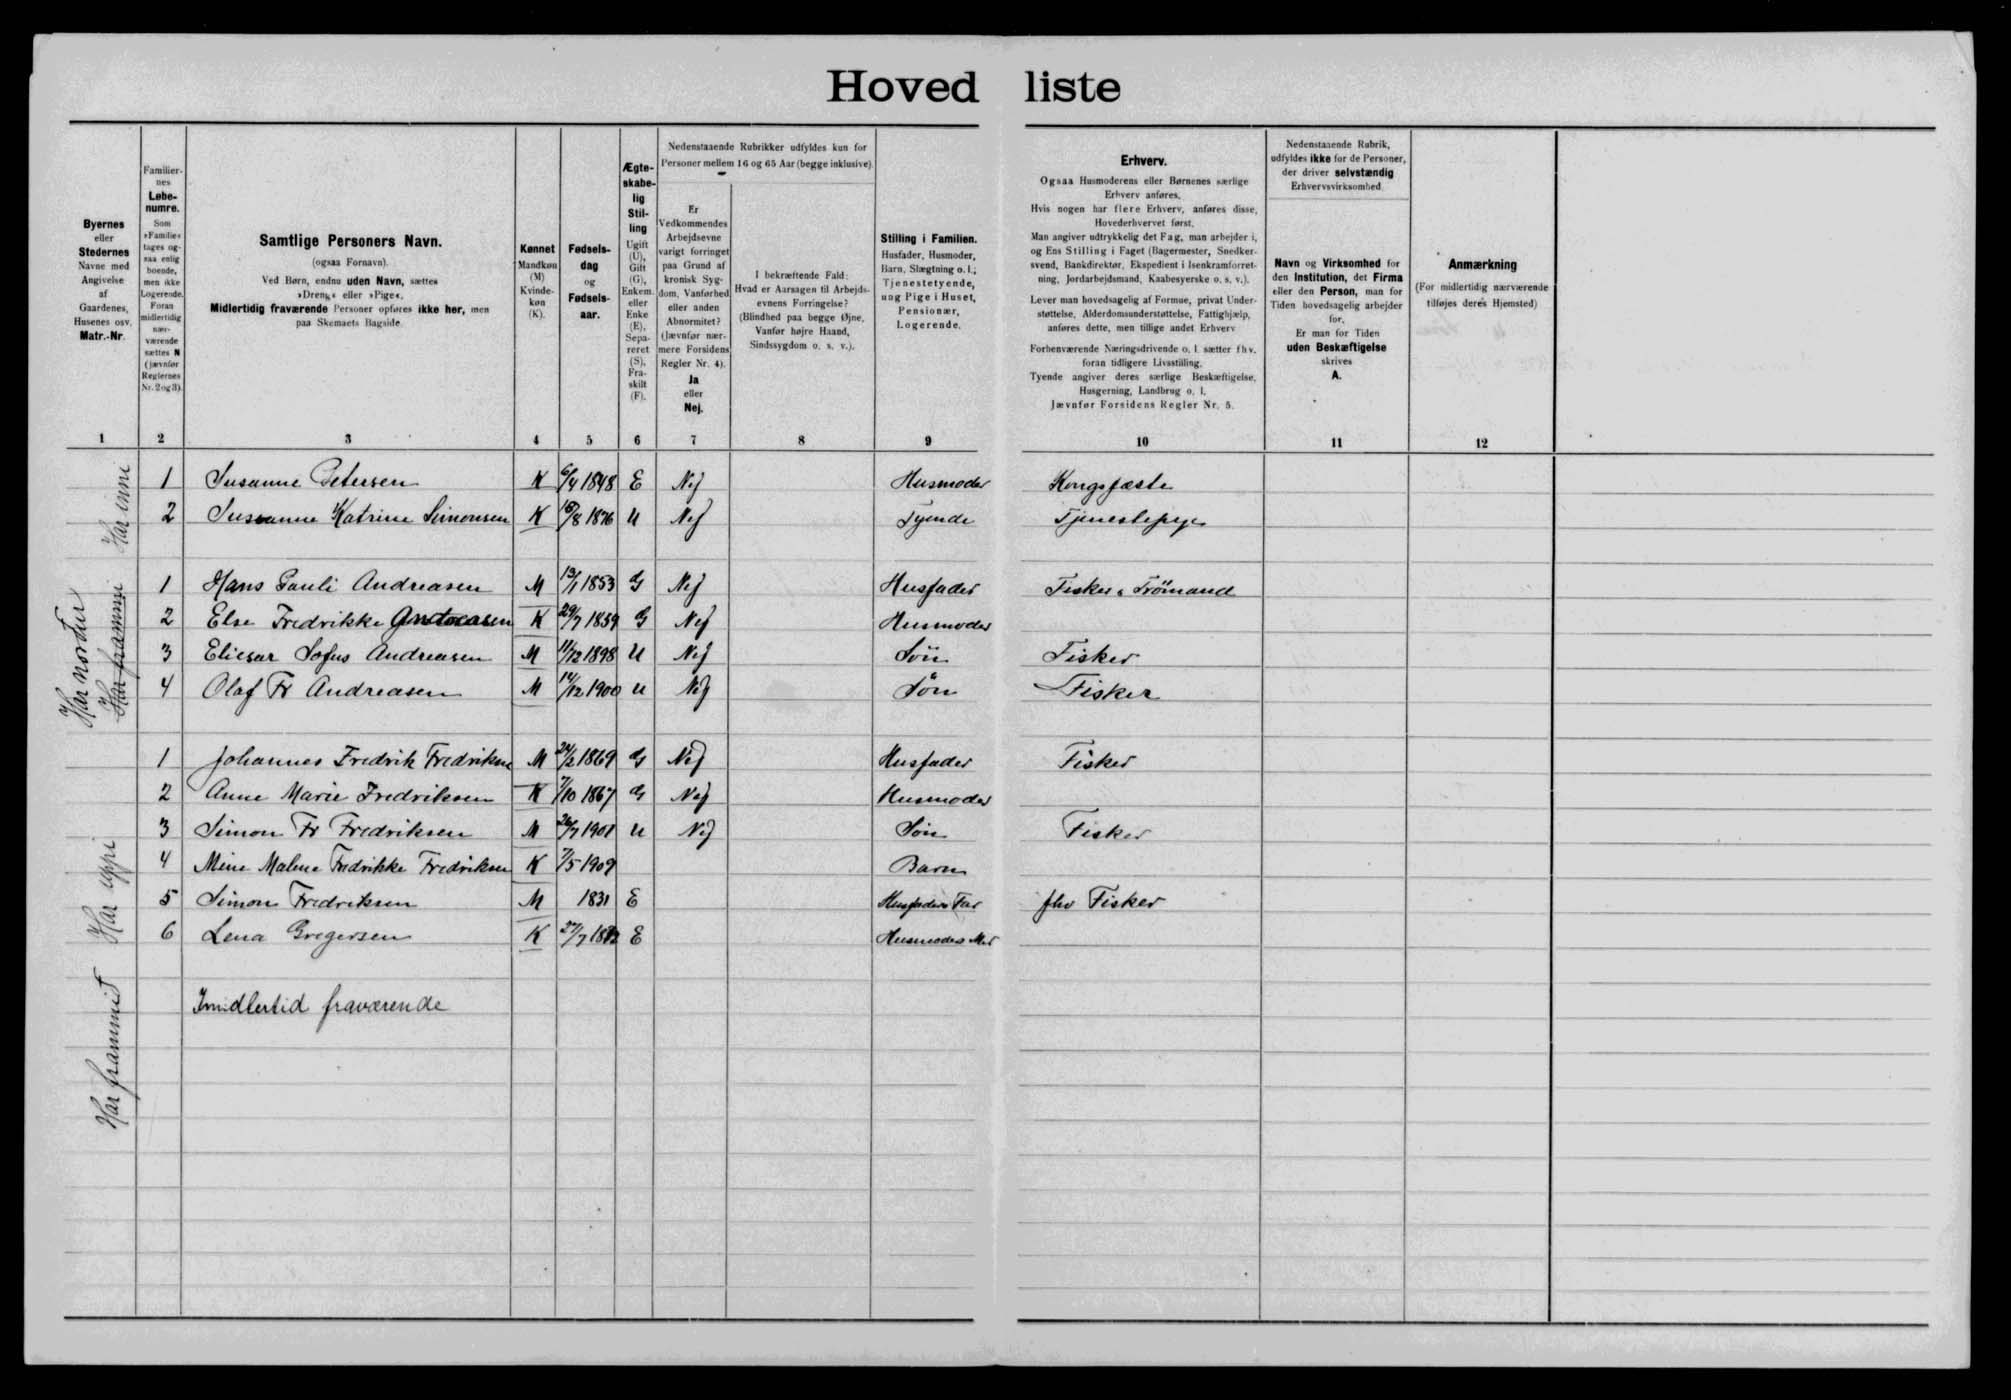 Hovedliste
Byernes
eller
Stedernes
Navne med
Angivelse
af
Gaardenes,
Husenes osv.
Matr.-Nr.
Familier-
nes
Løbe-
numre.
Som
»Familie«
tages og-
saa enlig
boende,
men ikke
Logerende.
Foran
midlertidig
nær-
værende
sættes N
(jævnfør
Reglernes
Nr. 2 og 3).
Samtlige Personers Navn.
(ogsaa Fornavn).
Ved Børn, endnu uden Navn, sættes
»Dreng« eller »Pige«.
Midlertidig fraværende Personer opføres ikke her, men
paa Skemaets Bagside.
Kønnet
Mandkøn
(M)
Kvinde-
køn
(K).
Fødsels-
dag
og
Fødsels-
aar.
Ægte-
skabe-
lig
Stil-
ling
Ugift
(U),
Gift
(G),
Enkem.
eller
Enke
(E),
Sepa-
reret
(S),
Fra-
skilt
(F).
Nedenstaaende Rubrikker udfyldes kun for
Personer mellem 16 og 65 Aar (begge inklusive).
Er
Vedkommendes
Arbejdsevne
varigt forringet
paa Grund af
kronisk Syg-
dom, Vanførhed
eller anden
Abnormitet?
(Jævnfør nær-
mere Forsidens
Regler Nr. 4).
Ja
eller
Nej.
I bekræftende Fald:
Hvad er Aarsagen til Arbejds-
evnens Forringelse?
(Blindhed paa begge Øjne,
Vanfør højre Haand,
Sindssygdom o. s. v.).
Stilling i Familien.
Husfader, Husmoder,
Barn, Slægtning o. l.;
Tjenestetyende,
ung Pige i Huset,
Pensionær,
Logerende.
Erhverv.
Ogsaa Husmoderens eller Børnenes særlige
Erhverv anføres.
Hvis nogen har flere Erhverv, anføres disse,
Hovederhvervet først.
Man angiver udtrykkelig det Fag, man arbejder i,
og Ens Stilling i Faget (Bagermester, Snedker-
svend, Bankdirektør, Ekspedient i Isenkramforret-
ning, Jordarbejdsmand, Kaabesyerske o. s. v.).
Lever man hovedsagelig af Formue, privat Under-
støttelse, Alderdomsunderstøttelse, Fattighjælp,
anføres dette, men tillige andet Erhverv
Forhenværende Næringsdrivende o. l. sætter fhv.
foran tidligere Livsstilling.
Tyende angiver deres særlige Beskæftigelse,
Husgerning, Landbrug o. l.
Jævnfør Forsidens Regler Nr. 5.
Nedenstaaende Rubrik,
udfyldes ikke for de Personer,
der driver selvstændig
Erhvervsvirksomhed
Navn og Virksomhed for
den Institution, det Firma
eller den Person, man for
Tiden hovedsagelig arbejder
for.
Er man for Tiden
uden Beskæftigelse
skrives
A.
Anmærkning
(For midlertidig nærværende
tilføjes deres Hjemsted)
1 2 3 4 5 6 7 8 9 10 11 12
Har inni
1 Susanne Petersen K 6/4 1848 E Nej Husmoder Kongsfæste
2 Susanne Katrine Simonsen K 18/8 1876 U Nej Tyende Tjenestepige
Har nordur
Har frammi
1 Hans Pauli Andreasen M 13/1 1853 G Nej Husfader Fisker & Trömand
2 Else Fredrikke Andreasen K 29/7 1859 G Nej Husmoder
3 Eliesar Sofus Andreasen M 11/12 1898 U Nej Sön Fisker
4 Olaf Fr Andreasen M 14/12 1900 U Nej Sön Fisker
Har uppi
1 Johannes Fredrik Fredriksen M 24/2 1869 G Nej Husfader Fisker
2 Anne Marie Fredriksen K 7/10 1867 G Nej Husmoder
3 Simon Fr Fredriksen M 26/7 1901 U Nej Sön Fisker
4 Mine Malene Fredrikke Fredriksen K 7/5 1909 Barn
5 Simon Fredriksen M 1831 E Husfaders Far fhv Fisker
6 Lena Gregersen K 27/7 E Husmoders Mor
Har frammi
Imidlertid fraværende